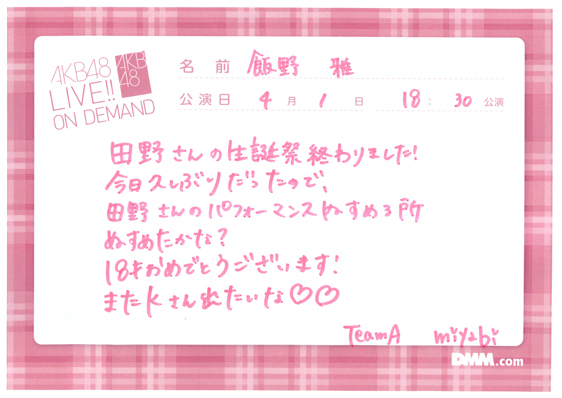 AKB48
LIVE!!
ON DEMAND
AKB
48
名 前 飯野 雅
公演日 4 月 1 日 18 : 30 公演
田野さんの生誕祭終わりました!
今日久しぶりだったので、
田野さんのパフォーマンスぬすめる所
ぬすめたかな?
18才おめでとうございます!
またKさん出たいな♡♡
TeamA miyabi
DMM.com